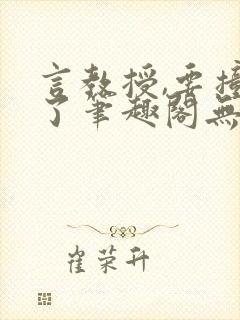 言教授,要撞
了笔趣阁無
崔荣升